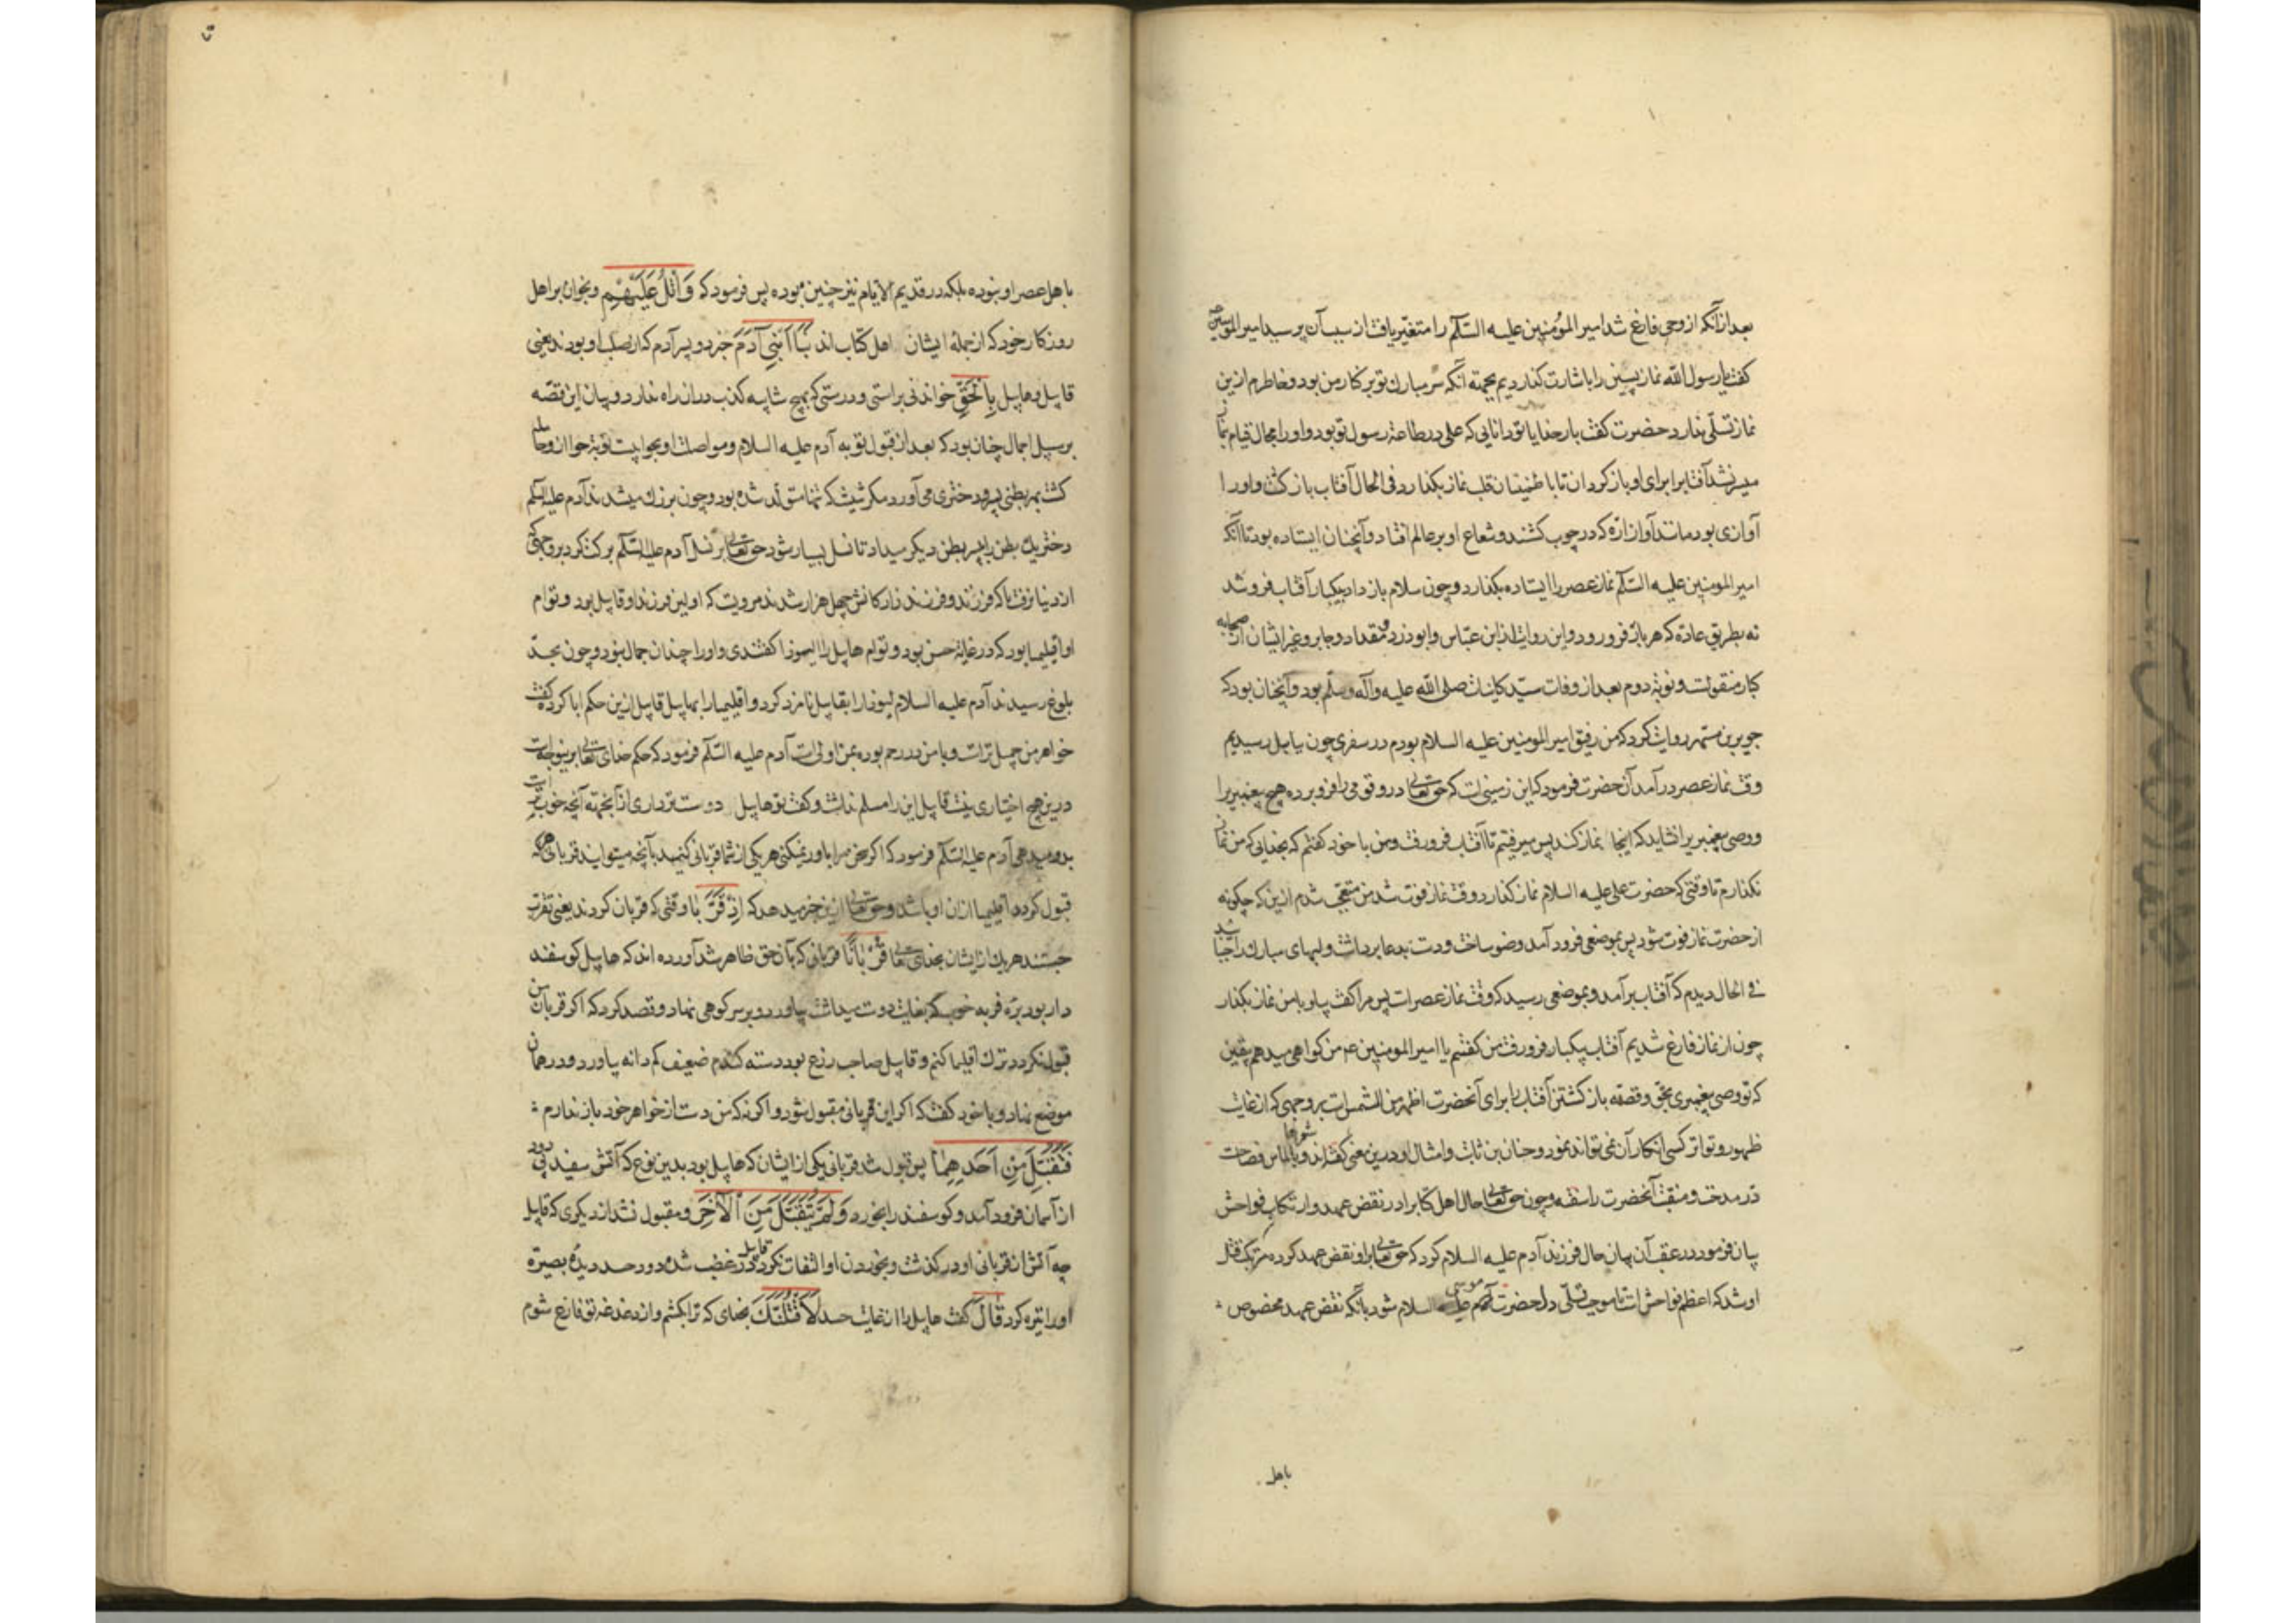 بعد ازآنکه از وحی فارغ شد امیر المؤمنین علیه السّلم را متغیّر یافت از سبب آن پرسید امیر المومنین
کفت یا رسول الله نماز پسین را باشارت کذاردیم بجهته آنکه سر مبارک تو بر کنار من بود و خاطرم ازین
نماز تسلّی ندارد حضرت کفت بار خدایا تو دانایی که علی در طاعة رسول تو بود و او را مجال قیام نماز
میسر نشد آفتابرا برای او باز کردان تا با طنینان قلب نماز بکذارد فی الحال آفتاب باز کشت و او را
آوازی بود مانند آواز ارّه که در چوب کشند و شعاع او بر عالم افتاد و آنچنان ایستاده بود تا آنکه
امیر المومنین علیه السّلم نماز عصر را ایستاده بکذارد و چون سلام باز داد بیکبار آفتاب فرو شد
نه بطریق عادة که هر بار فرو رود و این روایت از ابن عبّاس و ابوذر و مقداد و جابر و غیر ایشان از صحابه
کبار منقولست و نوبة دوم بعد از وفات سیّد کاینات صلی الله علیه وآله وسلّم بود و آنچنان بود که
جویر بن مسهر روایت کرد که من رفیق امیر المومنین علیه السلام بودم در سفری چون ببابل رسیدیم
وقت نماز عصر در آمد آن حضرت فرمود که این زمینی است که حق تعالی درو قومی را فرو برده هیچ پیغمبر را
و وصی پیغمبر را نشاید که اینجا نماز کند پس میرفتیم تا آفتاب فرو رفت و من با خود کفتم که بخدایی که من نماز
نکذارم تا وقتی که حضرت علی علیه السلام نماز کذارد وقت نماز فوت شد من متعجّب شدم ازین که چکونه
از حضرت نماز فوت شود پس بموضعی فرود آمد و وضو ساخت و دست بدعا برداشت و لبهای مبارک را جنبا شد
فی الحال دیدم که آفتاب برآمد و بموضعی رسید که وقت نماز عصر است پس مرا کفت بیا و با من نماز بکذار
چون از نماز فارغ شدیم آفتاب بیکبار فرو رفت من کفتم یا امیر المومنین ع من کواهی میدهم بیقین
که تو وصی پیغمبری بحقّ و قصّه باز کشتن آفتاب برای آنحضرت اظهر من الشمس است بر وجهی که از غایت
ظهور و تواتر کسی انکار آن نمی تواند نمود و حنان بن ثابت و امثال او درین معنی شعرها کفته اند و بالماس فصاحت
درّ مدحت و منقبت آنحضرت را سفته و چون حق تعالی حال اهل کتابرا در نقض عهد و ارتکاب فواحش
بیان فرمود در عقب آن بیان حال فرزند آدم علیه السلام کرد که حق تعالی برا و نقض عهد کرده مرتکب قتل
او شد که اعظم فواحش است تا موجب تسلّی دل حضرت موسی علیه السلام شود بآنکه نقض عهد مخصوص
باهل
باهل عصر او نبوده بلکه در قدیم الایّام نیز چنین بوده پس فرمود که وَاتْلُ عَلَیْهِمْ و بخوان بر اهل
روزکار خود که از جملهٔ ایشان اهل کتاب اند نَبَأَ ابْنَیْ آدَمَ خبر دو پسر آدم که از صلب او بودند یعنی
قابیل و هابیل بِالْحَقِّ خواندنی براستی و درستی که هیچ شایبه کذب دران راه ندارد و بیان این قصّه
بر سبیل اجمال چنان بود که بعد از قبول توبه آدم علیه السلام و مواصلت او بحوا بیست نوبة حوا ازو حامله
کشت بهر بطنی پسر و دختری می آورد مکر شیث که تنها متولّد شده بود و چون بزرک میشدند آدم علیه السّلم
دختر یک بطن را بپسر بطن دیکر میداد تا نسل بسیار شود حق تعالی بر نسل آدم علیه السّلم برکت کرد بر وجهی که
از دنیا نرفت تا که فرزند و فرزند زادکانش چهل هزار شدند مرویست که اولین فرزند او قابیل بود و توام
او اقلیما بود که در غایة حسن بود و توام هابیل را لیوزا کفتندی و او را چندان جمال نبود و چون بحدّ
بلوغ رسیدند آدم علیه السلام لیوذا را بقابیل نامزد کرد و اقلیما را بهابیل قابیل ازین حکم ابا کرد و کفت
خواهر من جمیل تر است و با من در رحم بوده بمن اولی است آدم علیه السّلم فرمود که حکم خدای تعالی برینوجه است
درین هیچ اختیاری نیست قابیل این را مسلم نداشت و کفت تو هابیل دوست تر داری از آنجهته آنچه خوبتر است
بدو میدهی آدم علیه السّلم فرمود که اکر سخن مرا باور نمیکنی هر یکی از شما قربانی کنید بآنچه میتوانید قربانی هر که
قبول کردد اقلیما ازان او باشد و حق تعالی ازین خبر میدهد که اِذْ قَرَّبَا وقتی که قربان کردند یعنی تقرب
جستند هر یک از ایشان بخدای تعالی قُرْبَانًا قربانی که بآن حق ظاهر شد آورده اند که هابیل کوسفند
دار بود برّه فربه خوب که بغایت دوست میداشت بیاورد و بر سر کوهی نهاد و قصد کرد که اکر قربان من
قبول نکردد ترک اقلیما کنم و قابیل صاحب زرع بود دسته کندم ضعیف کم دانه بیاورد و در همان
موضع نهاد و با خود کفت که اکر این قربانی مقبول شود و اکر نه که من دست از خواهر خود باز ندارم
فَتُقُبِّلَ مِنْ اَحَدِهِمَا پس قبول شد قربانی یکی از ایشان که هابیل بود بدین نوع که آتش سفید بی دود
از آسمان فرود آمد و کوسفند را بخورد وَلَمْ یُتَقَبَّلْ مِنَ الْآخَرِ و مقبول نشد از دیکری که قابیل
چه آتش از قربانی او در کذشت و بخوردن او التفات نکرد قابیل در غضب شد و دود حسد دیدهٔ بصیرة
او را تیره کرد قَالَ کفت هابیل را از غایت حسد لَاَقْتُلَنَّکَ بخدای که ترا بکشم و از دغدغه تو فارغ شوم